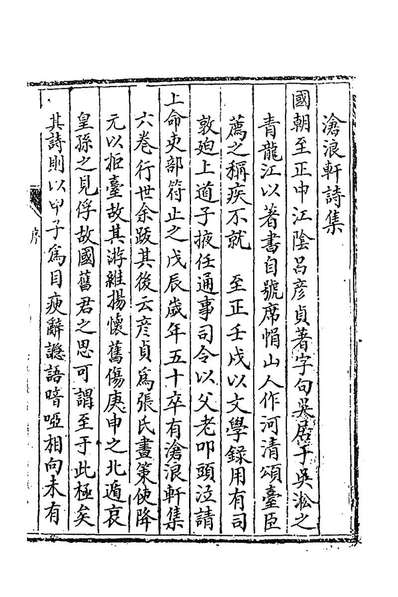 滄浪軒詩集
國朝至正中江陰呂彥貞著字句吳居于吳淞之
青龍江以著書自號席帽山人作河清頌臺臣
薦之稱疾不就　至正壬戌以文學錄用有司
敦迫上道子掖任通事司令以父老叩頭泣請
上命吏部符止之戊辰歲年五十卒有滄浪軒集
六卷行世余跋其後云彥貞爲張氏畫策使降
元以拒臺故其游維揚懷舊傷庚申之北遁哀
皇孫之見俘故國舊君之思可謂至于此極矣
其詩則以甲子爲目庾辭讔語喑啞相向未有
序